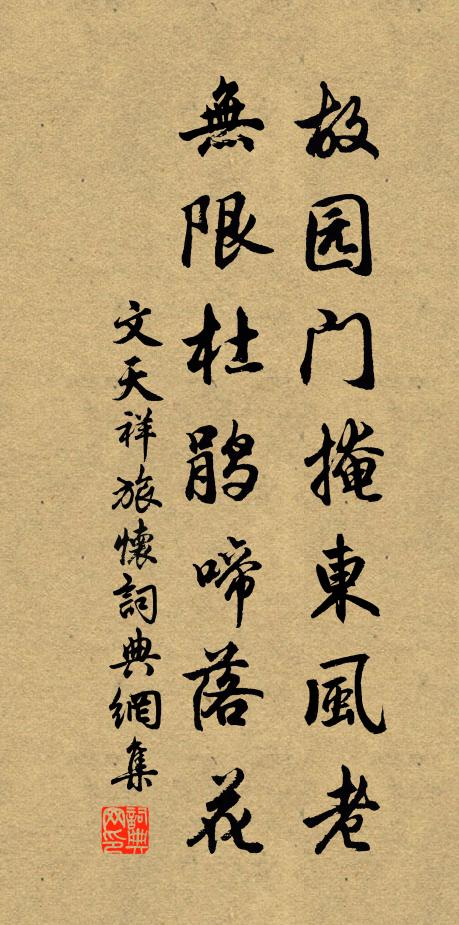 故园门掩東風老
無限杜鹃啼落花
文天祥旅懷詞典網集
詞典网印